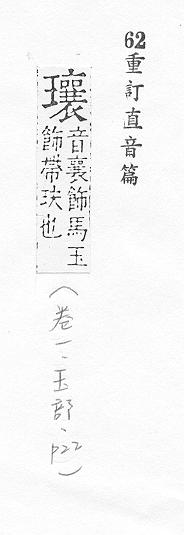 62重訂直音篇
瓖音襄飾馬玉
飾帶玦也
(卷一、玉部、p22)